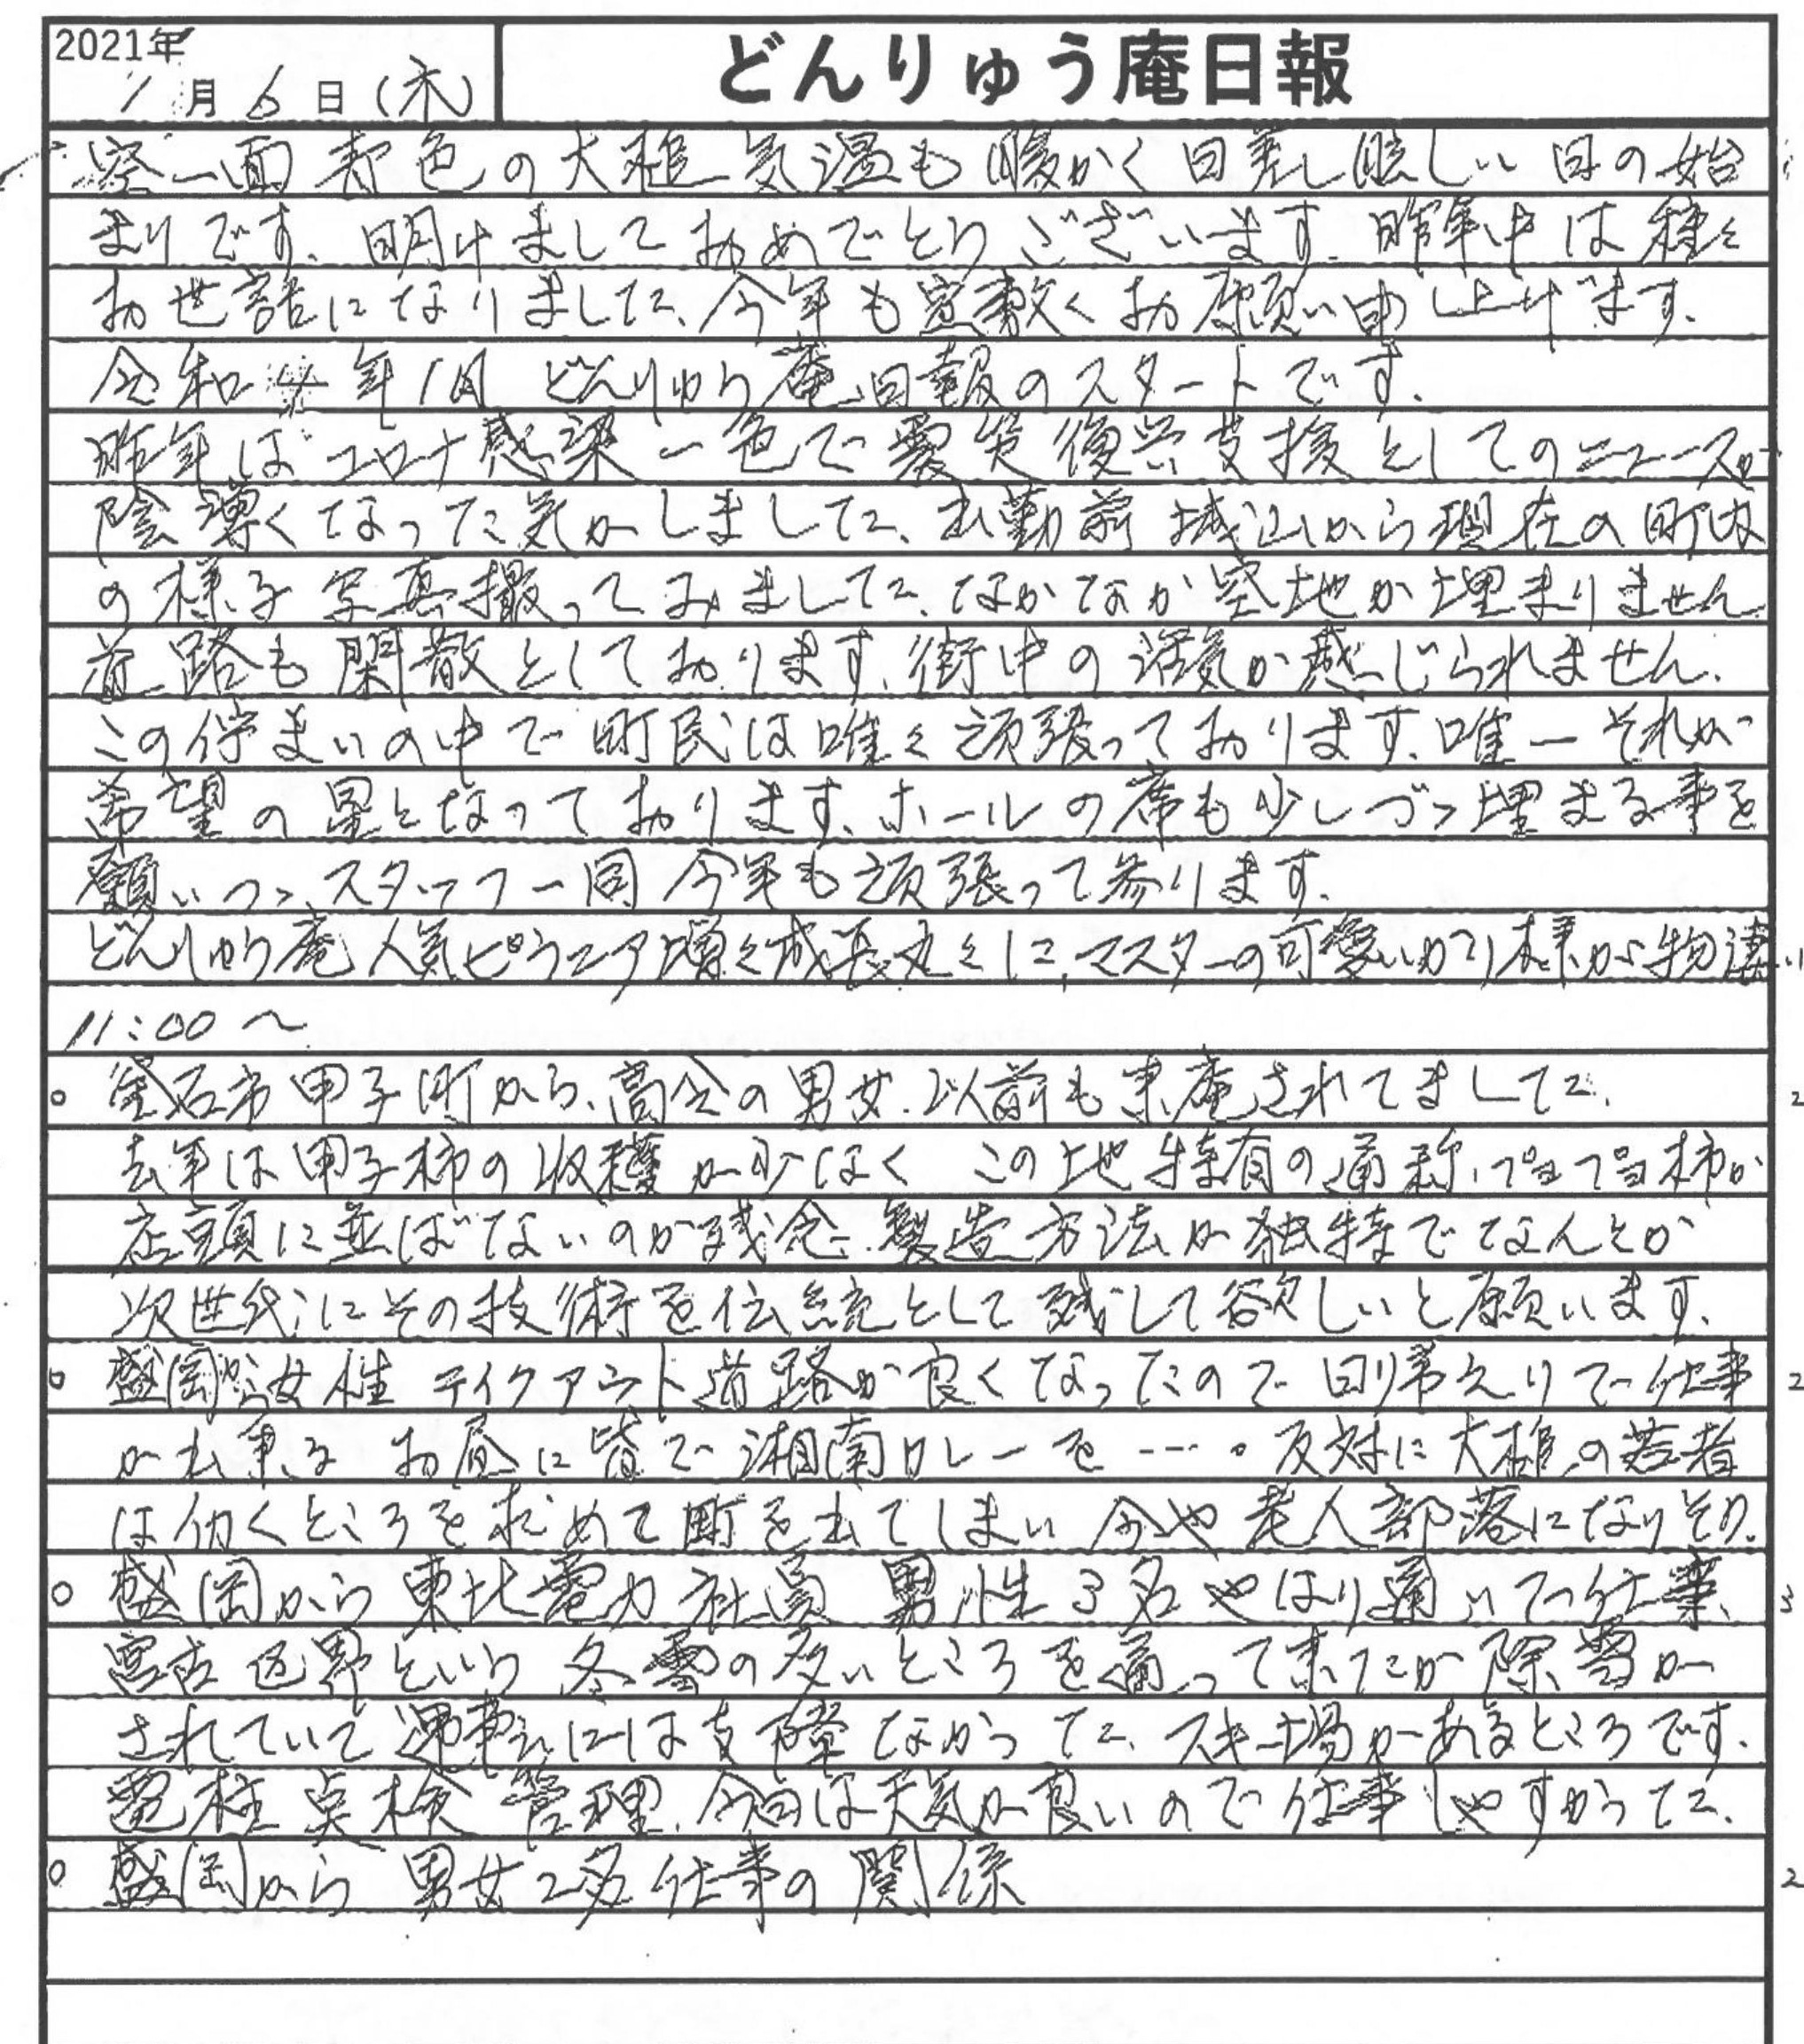 2021年
1月6日(木)
どんりゅう庵日報
空一面青色の大槌 気温も暖かく日差し眩しい日の始
まりです、明けましておめでとうございます。昨年中は種々
お世話になりました、今年も宜敷くお願い申し上げます。
令和4年1月 どんりゅう庵日報のスタートです。
昨年はコロナ感染一色で震災復興支援としてのニュースが
陰薄くなった気がしました、出勤前城山から現在の町内
の様子写真撮ってみました、なかなか空地が埋まりません
道路も閑散としております、街中の活気が感じられません。
この佇まいの中で町民は唯々頑張っております、唯一それが
希望の星となっております、ホールの席も少しづつ埋まる事を
願いつつ、スタッフ一同今年も頑張って参ります。
どんりゅう庵人気ピラニア増々成長丸々に、マスターの可愛いがり様が物凄い
11:00〜
○ 釜石市甲子町から、高令の男女、以前も来庵されてました。 2
去年は甲子柿の収穫が少なく この地特有の通称、プヨプヨ柿が
店頭に並ばないのが残念、製造方法が独特でなんとか
次世代にその技術を伝統として残して欲しいと願います。
○ 盛岡から女性 テイクアウト道路が良くなったので日帰えりで仕事 2
が出来る お昼に皆で湘南カレーを ・・・・。反対に大槌の若者
は仂くところを求めて町を出てしまい今や老人部落になりそう。
○ 盛岡から東北電力社員 男性3名やはり通いで仕事、 3
宮古区界という冬雪の多いところを通って来たが除雪が
されていて運転には支障なかった、スキー場があるところです。
電柱点検管理、今回は天気が良いので仕事しやすかった、
○ 盛岡から 男女2名仕事の関係 2